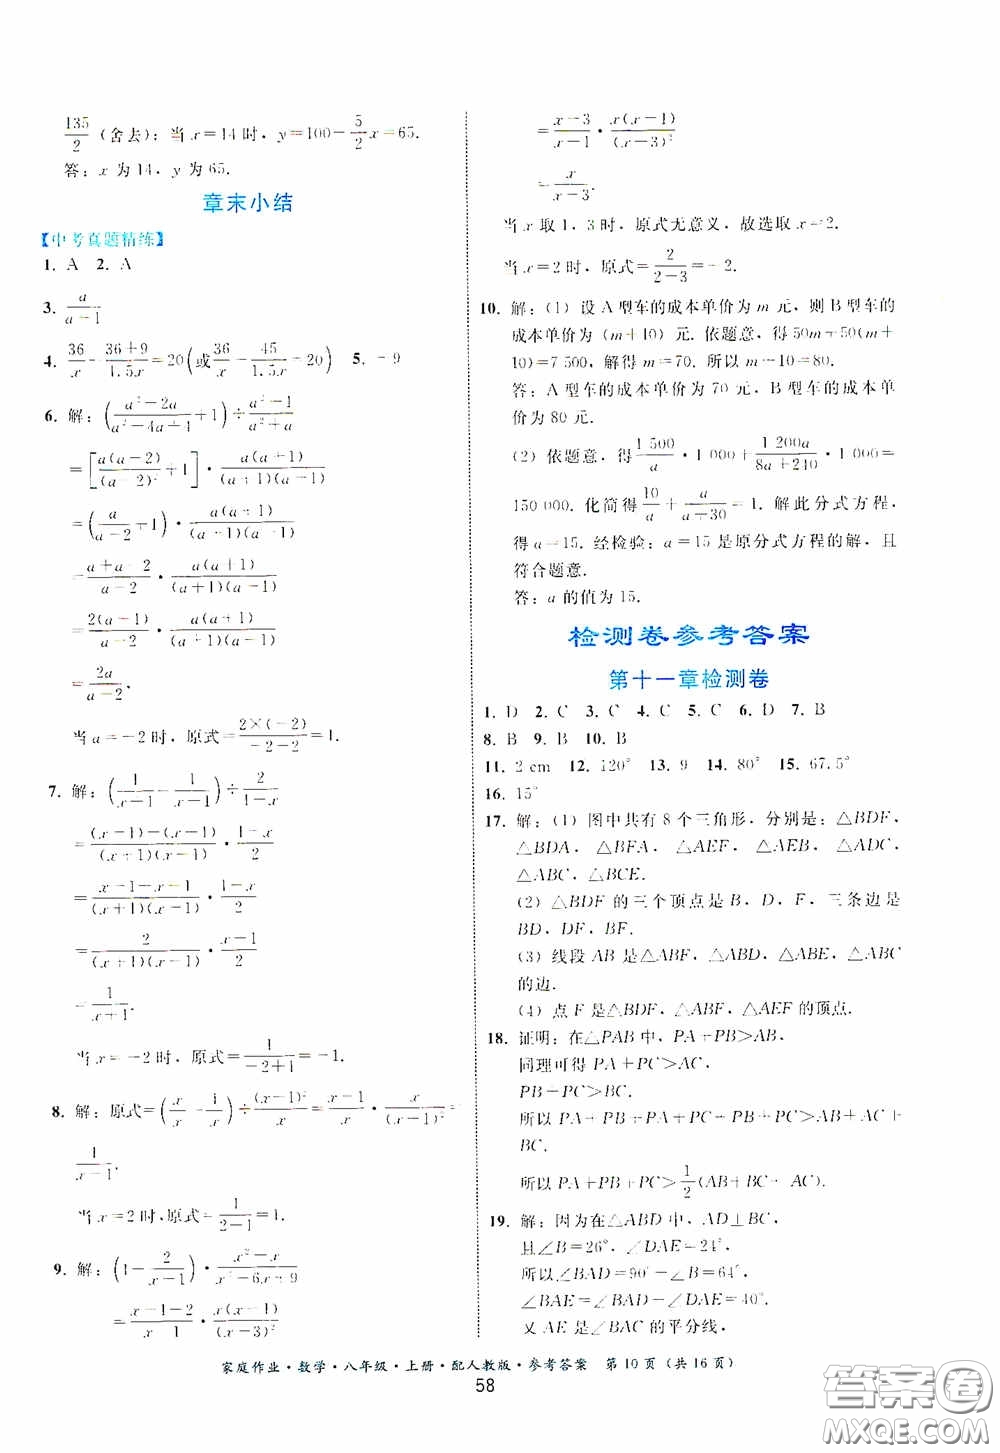 135/2 (舍去);当 x=14 时, y=100-5/2x=65.
答: x 为 14, y 为 65.
章末小结
【中考真题精练】
1. A 2. A
3. a/(a-1)
4. 36/x-(36+9)/(1.5x)=20(或36/x-45/(1.5x)=20) 5. -9
6. 解:((a²-2a)/(a²-4a+4)+1)÷(a²-1)/(a²+a)
=[a(a-2)/(a-2)²+1]·a(a+1)/((a+1)(a-1))
=(a/(a-2)+1)·a(a+1)/((a+1)(a-1))
=(a+a-2)/(a-2)·a(a+1)/((a+1)(a-1))
=2(a-1)/(a-2)·a(a+1)/((a+1)(a-1))
=2a/(a-2).
当 a=-2 时,原式=2×(-2)/(-2-2)=1.
7. 解:(1/(x+1)-1/(x-1))÷2/(1-x)
=((x-1)-(x+1))/((x+1)(x-1))·(1-x)/2
=(x-1-x-1)/((x+1)(x-1))·(1-x)/2
=2/((x+1)(x-1))·(x-1)/2
=1/(x+1).
当 x=-2 时,原式=1/(-2+1)=-1.
8. 解:原式=(x/x-1/x)÷(x-1)²/x=(x-1)/x·x/(x-1)²=
1/(x-1).
当 x=2 时,原式=1/(2-1)=1.
9. 解:(1-2/(x-1))·(x²-x)/(x²-6x+9)
=(x-1-2)/(x-1)·x(x-1)/(x-3)²
=(x-3)/(x-1)·x(x-1)/(x-3)²
=x/(x-3).
当 x 取 1, 3 时,原式无意义,故选取 x=2.
当 x=2 时,原式=2/(2-3)=-2.
10. 解:(1) 设 A 型车的成本单价为 m 元,则 B 型车的
成本单价为 (m+10) 元. 依题意,得 50m+50(m+
10)=7 500,解得 m=70. 所以 m+10=80.
答: A 型车的成本单价为 70 元, B 型车的成本单
价为 80 元.
(2) 依题意,得 1 500/a·1 000+1 200a/(8a+240)·1 000=
150 000. 化简得 10/a+a/(a+30)=1. 解此分式方程,
得 a=15. 经检验: a=15 是原分式方程的解,且
符合题意.
答: a 的值为 15.
检测卷参考答案
第十一章检测卷
1. D 2. C 3. C 4. C 5. C 6. D 7. B
8. B 9. B 10. B
11. 2 cm 12. 120° 13. 9 14. 80° 15. 67.5°
16. 15°
17. 解:(1) 图中共有 8 个三角形,分别是:△BDF,
△BDA, △BFA, △AEF, △AEB, △ADC,
△ABC, △BCE.
(2) △BDF 的三个顶点是 B, D, F,三条边是
BD, DF, BF.
(3) 线段 AB 是△ABF, △ABD, △ABE, △ABC
的边.
(4) 点 F 是△BDF, △ABF, △AEF 的顶点.
18. 证明:在△PAB 中, PA+PB>AB,
同理可得 PA+PC>AC,
PB+PC>BC.
所以 PA+PB+PA+PC+PB+PC>AB+AC+
BC.
所以 PA+PB+PC>1/2(AB+BC+AC).
19. 解:因为在△ABD 中, AD⊥BC,
且∠B=26°, ∠DAE=24°,
所以∠BAD=90°-∠B=64°,
∠BAE=∠BAD-∠DAE=40°.
又 AE 是∠BAC 的平分线,
家庭作业·数学·八年级·上册·配人教版·参考答案 第 10 页 (共 16 页)
58
答案圈
MXQE.COM